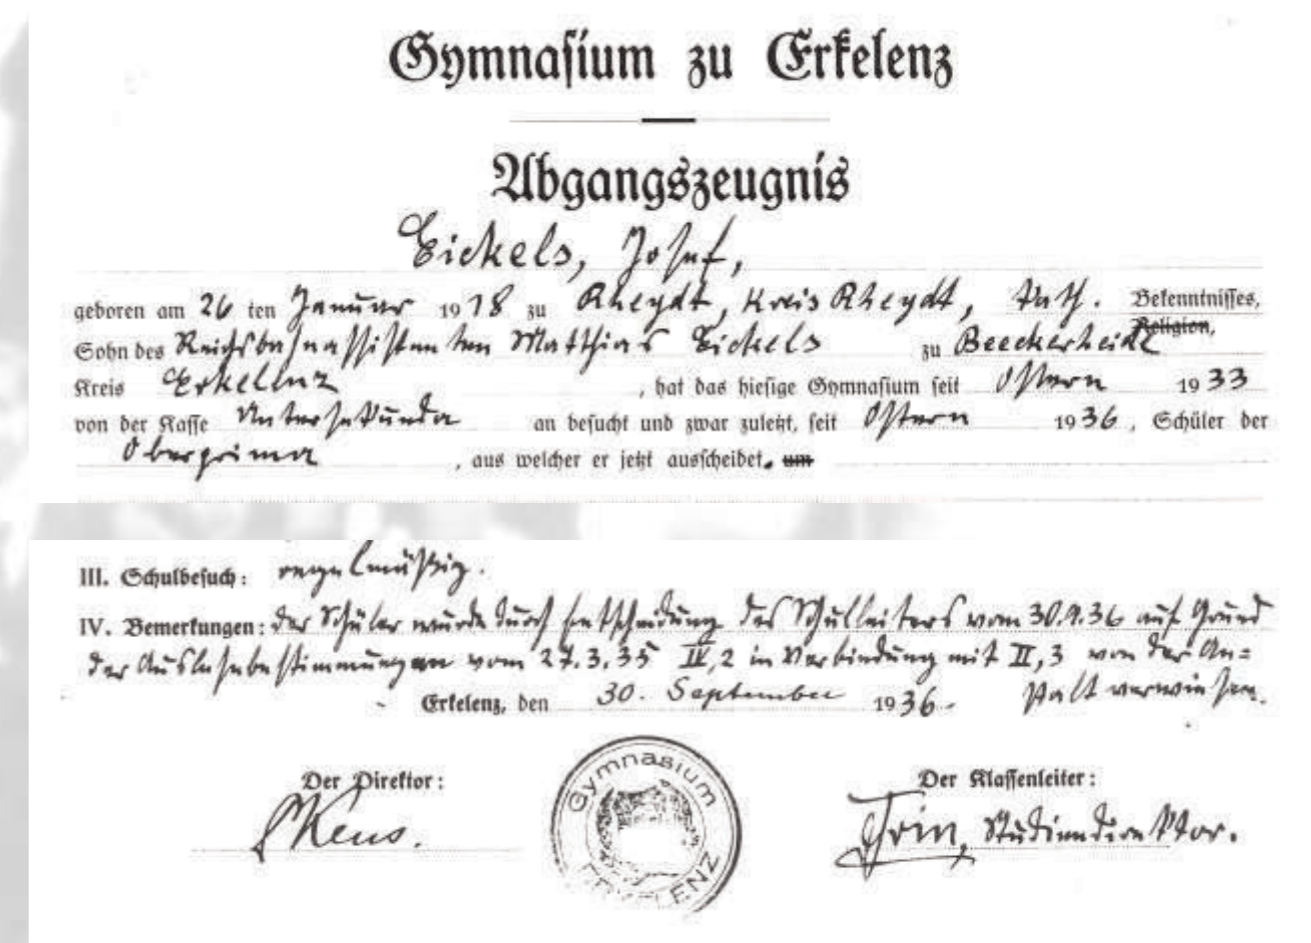 Gymnasium zu Erkelenz
Abgangszeugnis
Eickels, Josef,
geboren am 26 ten Januar 1918 zu Rheydt, Kreis Rheydt, kath. Bekenntnisses,
Religion,
Sohn des Reichsbahnassistenten Matthias Eickels zu Beeckerheide
Kreis Erkelenz, hat das hiesige Gymnasium seit Ostern 1933
von der Kasse Untersekunda an besucht und zwar zuletzt, seit Ostern 1936, Schüler der
Oberprima, aus welcher er jetzt ausscheidet. um
III. Schulbesuch: regelmäßig.
IV. Bemerkungen: der Schüler wurde durch Entscheidung des Schulleiters vom 30.9.36 auf Grund
der Auslesebestimmungen vom 27.3.35 IV,2 in Verbindung mit II,3 von der An=
stalt verwiesen.
Erkelenz, den 30. September 1936.
Der Direktor:
Der Klassenleiter:
Gymnasium
ERKELENZ
Studiendirektor.